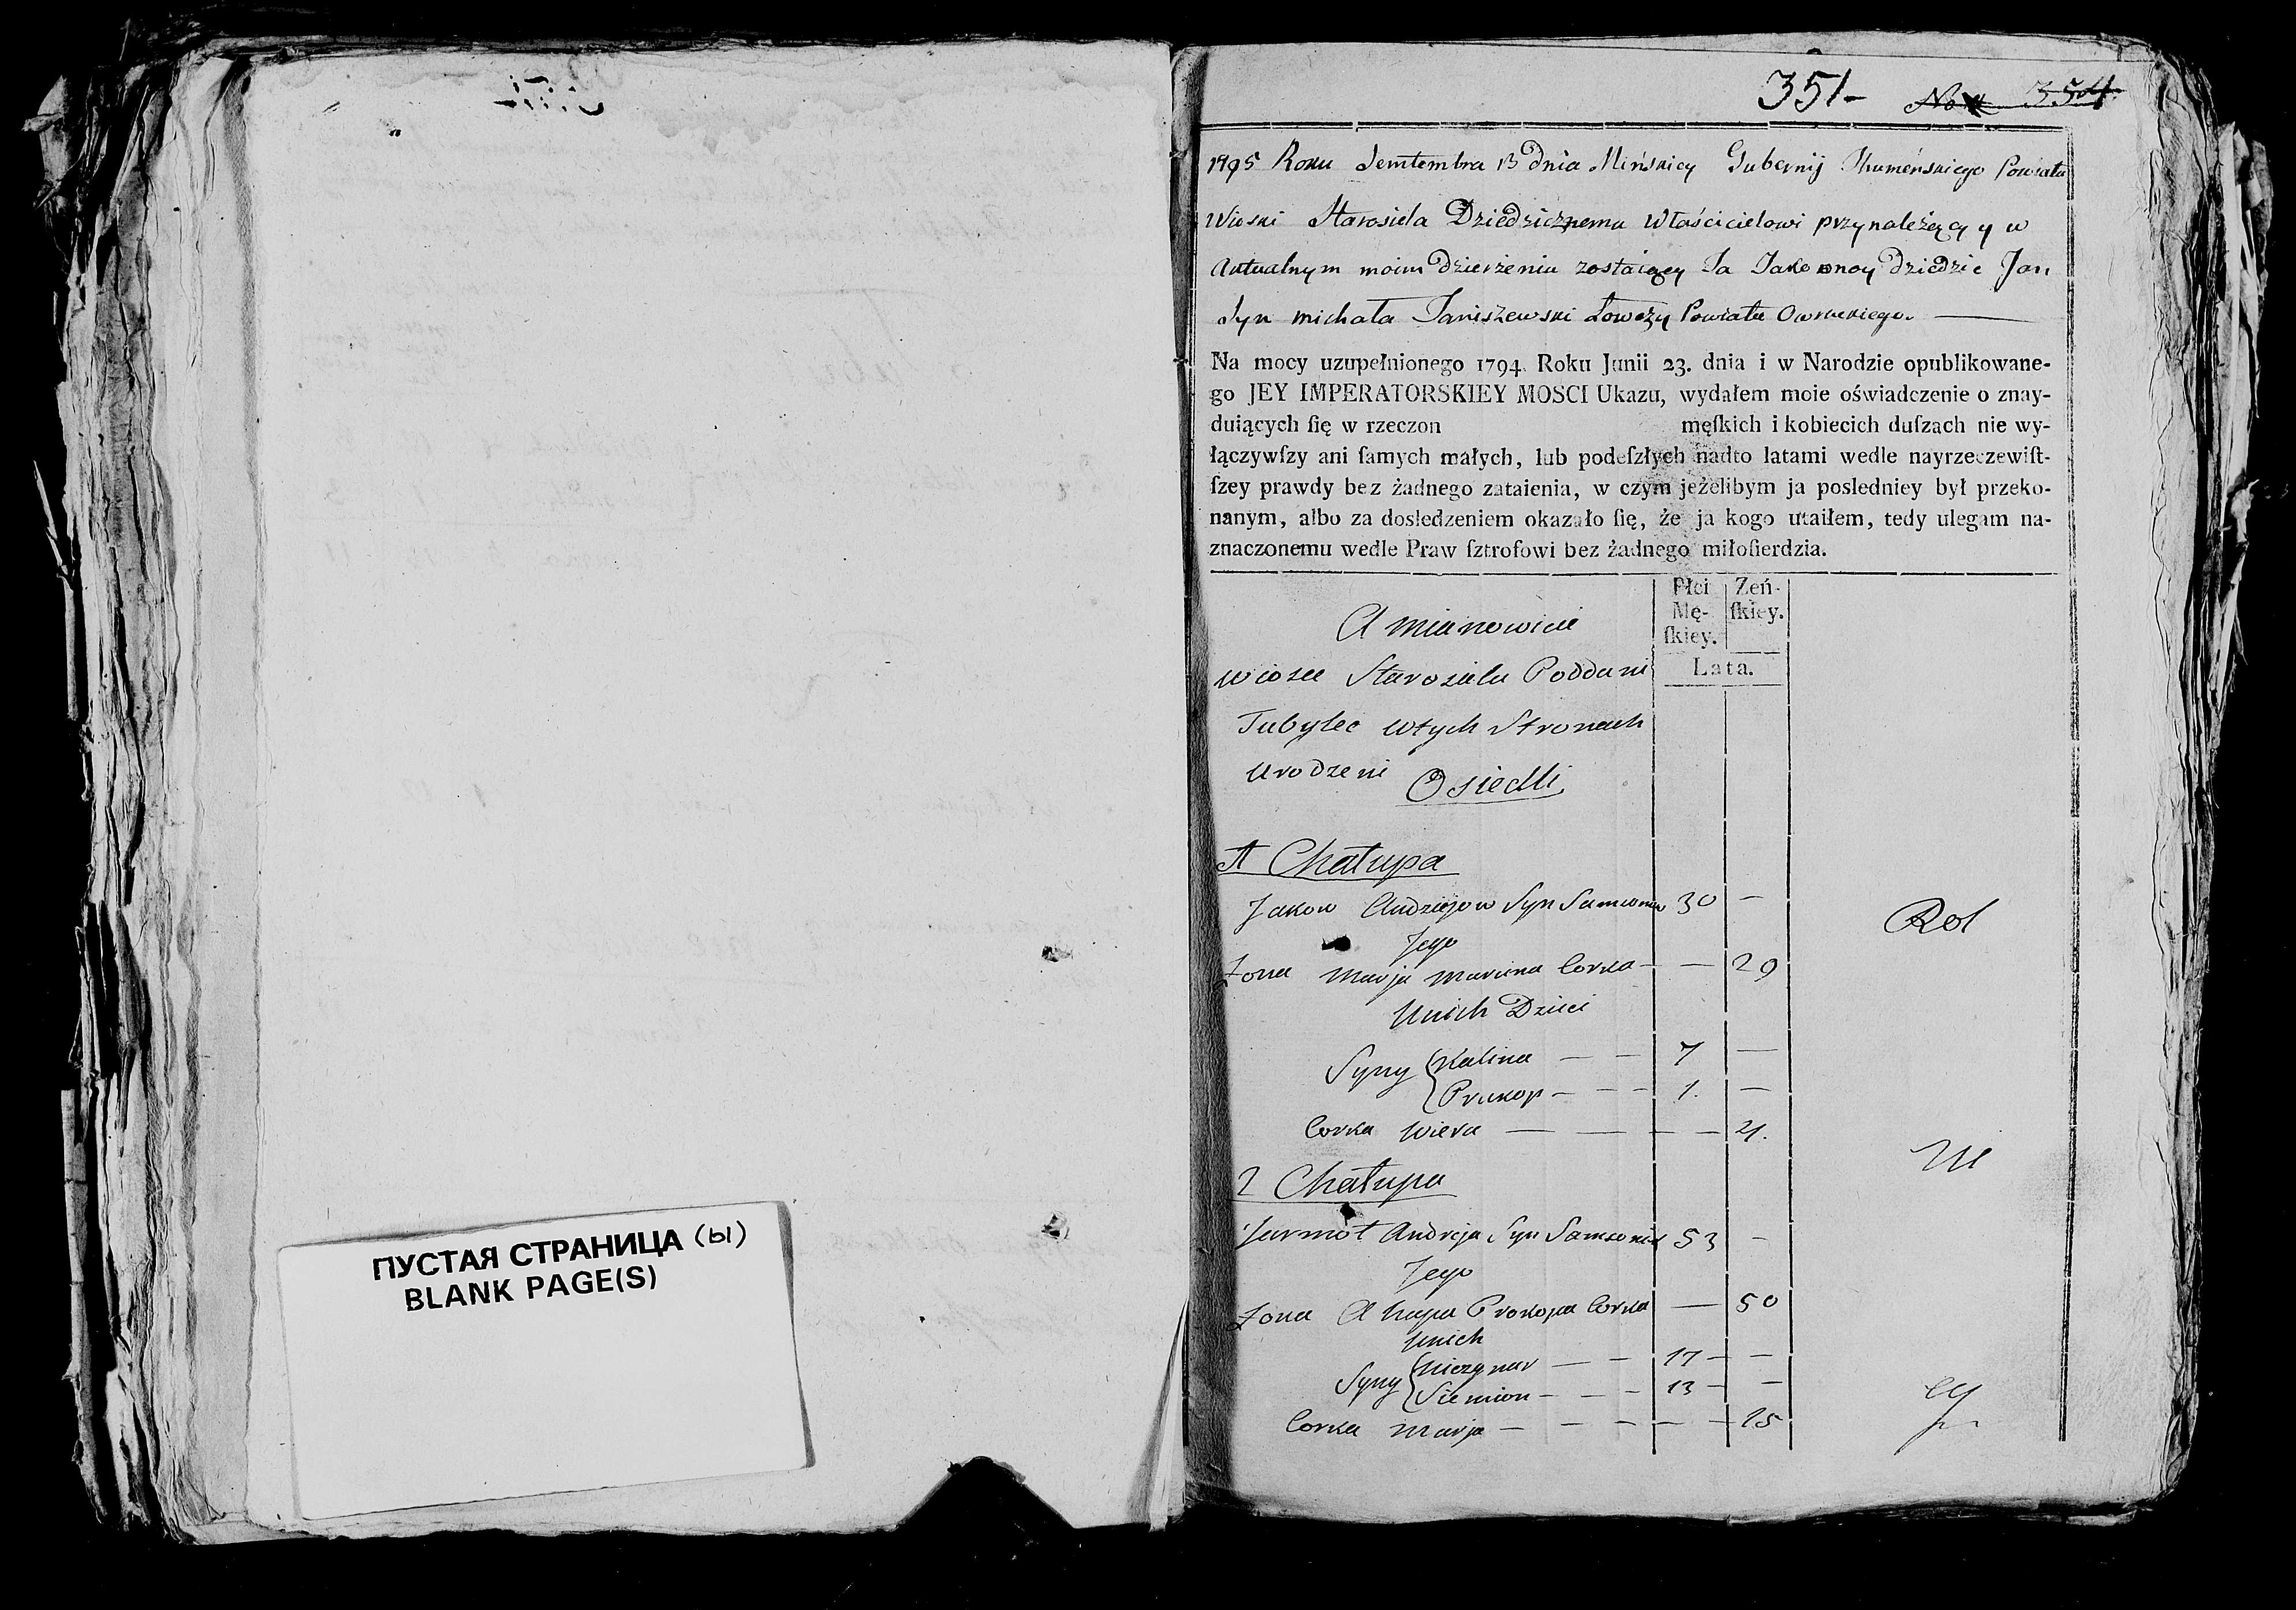 351-
No 354.
1795 Roku Semtembra 13 dnia Mińskiey Gubernij Ihumeńskiego Powiatu
Wioski Starosiela Dziedzicznemu Właścicielowi przynależący y w
Aktualnym moim dzierżeniu zostaiący Ja Jako onoy dziedzic Jan
Syn michała Janiszewski Łowczy Powiatu Owruckiego.
Na mocy uzupełnionego 1794. Roku Junii 23. dnia i w Narodzie opublikowane-
go JEY IMPERATORSKIEY MOSCI Ukazu, wydałem moie oświadczenie o znay-
duiących ſię w rzeczon męſkich i kobiecich duſzach nie wy-
łączywſzy ani ſamych małych, lub podeſzłych nadto latami wedle nayrzeczewiſt-
ſzey prawdy bez żadnego zataienia, w czym jeżelibym ja posledniey był przeko-
nanym, albo za dosledzeniem okazało ſię, że ja kogo utaiłem, tedy ulegam na-
znaczonemu wedle Praw ſztrofowi bez żadnego miłoſierdzia.
Płci Zeń-
Mę- ſkiey.
ſkiey.
A mianowicie
Lata.
wiosce Starosielu Poddani
Tubylec wtych Stronach
Urodzeni Osiedli
1 Chałupa
Jakow Andziejow Syn 30 —
Jego
Żona Marja Corka — — 29
Unich Dzieci
Syny Kalina — — 7 —
Prokop — — — 1. —
Corka Wiera — — — — 4.
2 Chałupa
Jarmoł Andreja Syn 53 —
Jego
Żona Ahapa Prokopa Corka — 50
Unich
Syny — — 17 — —
Siemion — — — 13 — —
Corka Marja — — — — — — 15
ПУСТАЯ СТРАНИЦА (ы)
BLANK PAGE(S)